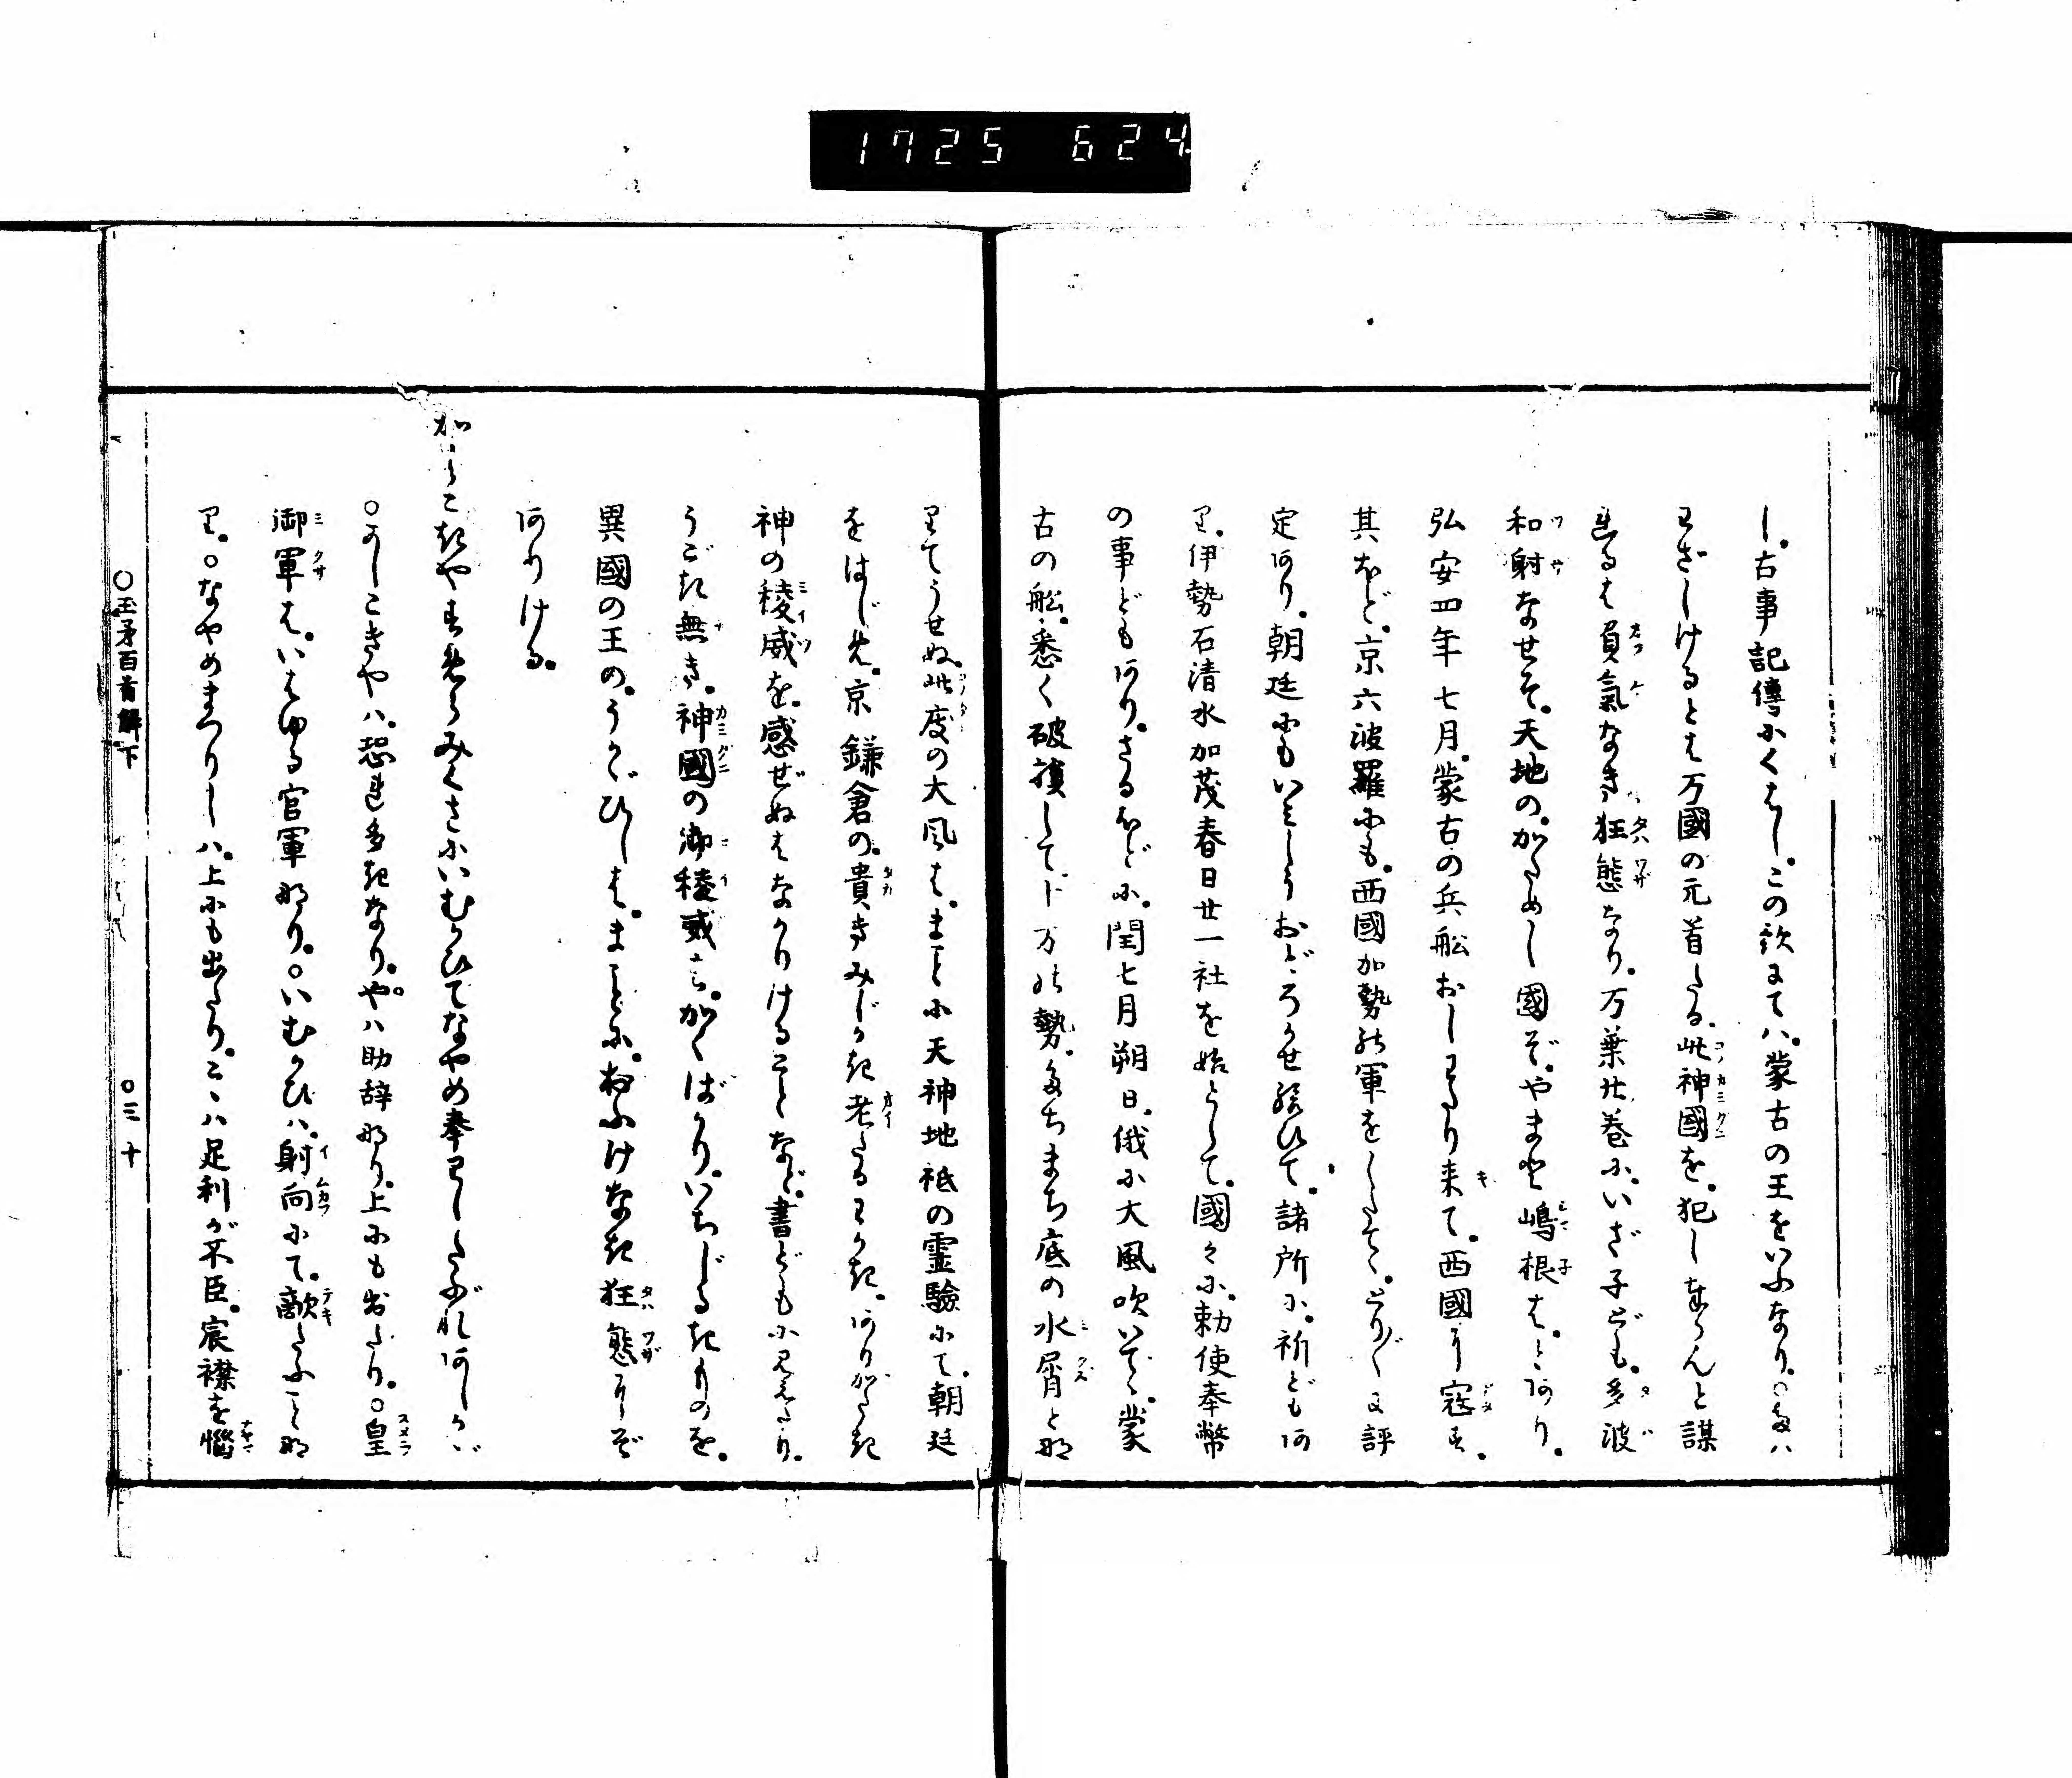 1725 624
し。古事記傳にくはし。この歌にては、蒙古の王をいふなり。○たは
わざしけるとは万國の元首たる、此神國を、犯し奪らんと謀
れるは負氣なき狂態なり。万葉廿巻に、いざ子ども、多波
和射なせそ、天地の、かためし國ぞ、やまと嶋根は、とあり。
弘安四年七月、蒙古の兵船おしわたり来て、西國に寇す。
其ほど、京六波羅にも、西國加勢の軍をしたてゝ、とり〲に評
定あり。朝廷にもいみしうおどろかせ給ひて、諸所に、祈どもあ
り。伊勢石清水加茂春日廿一社を始として、國々に、勅使奉幣
の事どもあり。さるほどに、閏七月朔日、俄に大風吹いでゝ、蒙
古の舩、悉く破損して、十万の勢、たちまち底の水屑とな
りてうせぬ。此度の大風は、まことに天神地祇の霊驗にて、朝廷
をはじめ、京鎌倉の、貴きみじかき老たるわかき、ありがたき
神の稜威を、感ぜぬはなかりけることなど、書どもに見えたり。
うごき無き、神國の御稜威の、かくばかり、いちじるきものを、
異國の王の、うかゞひしは、まことに、おふけなき狂態にぞ
ありける。
かしこきやすめらみくさにいむかひてなやめ奉りしたぶれあしかゞ
○かしこきや八、恐れ多きなり。や八助辞なり。上にも出たり。○皇
御軍は、いはゆる官軍なり。○いむかひ八、射向にて、敵たふことな
り。○なやめまつりし八、上にも出たり。こゝ八足利が不臣、宸襟を惱
○玉矛百首解下 ○三十